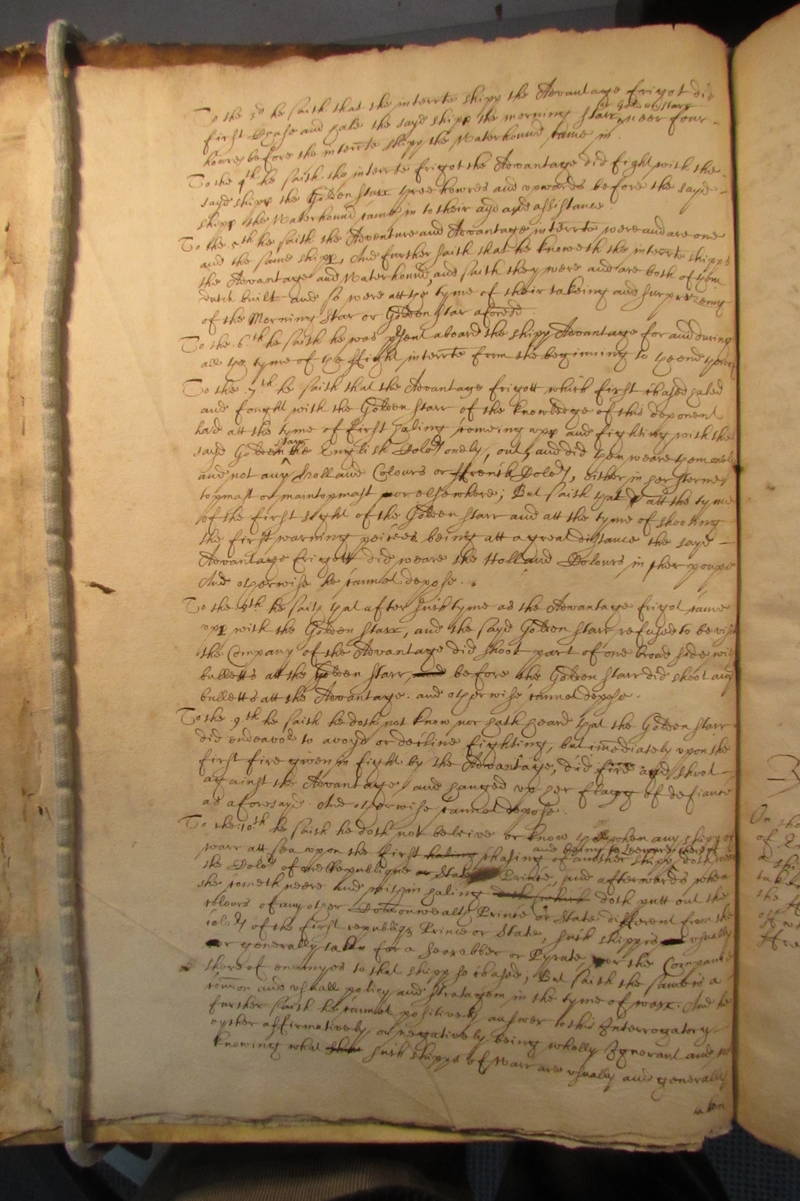 To the 3d he saith that the interrte shipp the Advantage frigot did
first Chase and hale the sayd shipp the morning starr or Golden Starr neer four
howres before the interrte shipp the Waterhound came in.
To the 4th he saith the interrte frigot the Advantage did fight with the
sayd shipp the Golden Starr three howres and upwards before the sayd
shipp the Waterhound came in to their ayd and assistance
To the 5th he saith the Adventure and Advantage interrte were and are one
and the same shipp, And further saith that he knoweth the interrte shipps
the Advantage and Waterhound, and saith they were and are both of them
dutch built and so were att the tyme of their takeing and surprizeing
of the Morning Star or Golden Star aforesd.
To the 6th he saith he was present aboard the shipp Advantage for and during
all the tyme of the ffight interrte from the beginning to the end thereof
To the 7th he saith that the Advantage frigott which first chased haled
and fought with the Golden Starr of the knowledge of this deponent
had att the tyme of first haling comeing upp and fighting with the
sayd Golden Starr the English Colors onely, out, and did then weare them onely
and not any Holland Colours or ffrench Colors, either in her sterne
topmast or maintopmast or elsewhere; But saith that att the tyme
of the first sight of the Golden Starr and att the tyme of shooting
the first warning peices being att a great distance the sayd
Advantage Frigott did weare the Holland Colours in her poope
And otherwise he cannot depose.
To the 8th he saith that after such tyme as the Advantage frigot came
upp with the Golden Starr, and the sayd Golden Starr refused to be
the Company of the Advantage did shoot part of one broad side with
bulletts att the Golden Starr, and before the Golden Starr did shoot any
bulletts att the Advantage. and otherwise cannot depose.
To the 9th he saith he doth not know nor hath heard that the Golden Starr
did endeavor to avoyd or decline fighting, but imediately upon the
first fire given in fight by the Advantage, did fire and shoot
against the Advantage and hanged up her flagg of defiance
as aforesayd And otherwise cannot depose.
To the 10th he saith he doth not beleive or know that when any shipp of
warr att sea upon the first haling chasing of another shipp doth weare
the Colors of one Republique or State Prince, and afterwards when
she cometh neere and within haling doth putt out the
colours of any other Commonwealth Prince or State different from the
colors of the first republiqe Prince or State, such shipp is usually
or generally taken for a Sea robber or Pyrate or the Companie
thereof enemyes to that shipp so chased, But saith the same is a
common and usuall policy and stratagem in the tyme of warr. And he
further saith he cannot positively answer to this Interrogatory
eyther affirmatively or negatively being wholly Ignorant and not
knowing what such shipps of Warr are usually and generally
taken